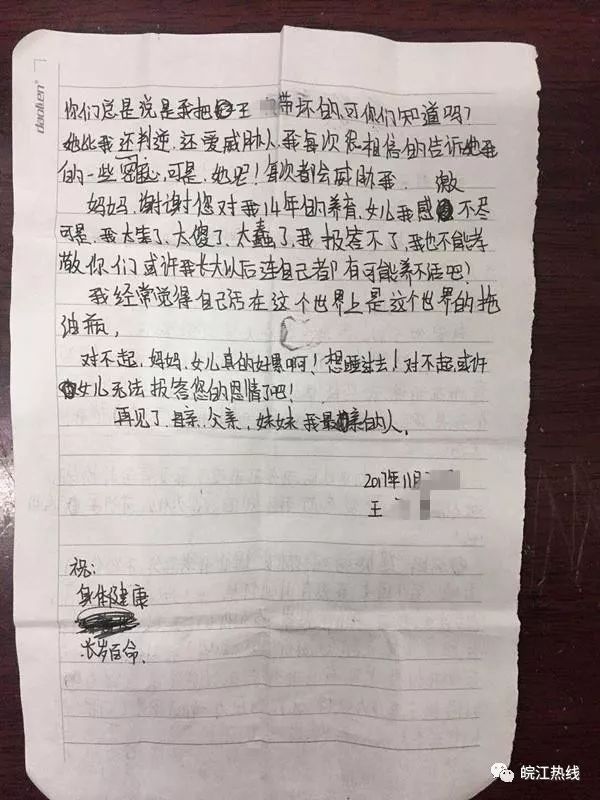 daolien
你们总是说是我把王 带坏的可你们知道吗?
她比我还判逆、还爱威胁人我每次很相信的告诉她我
的一些密秘,可是、她呢!每次都会威胁我、 激
妈妈、谢谢您对我14年的养育、女儿我感 不尽
可是、我太笨了、太傻了、太蠢了、我报答不了、我也不能孝
敬你们或许我长大以后连自己都有可能养不活吧?
我经常觉得自己活在这个世界上是这个世界的拖
油瓶、
对不起、妈妈、女儿真的好累啊!想睡过去!对不起或许
女儿无法报答您的恩情了吧!
再见了、母亲、父亲、妹妹我最亲的人、
2017年11月
王
祝:
身体健康
长岁百命、
皖江热线